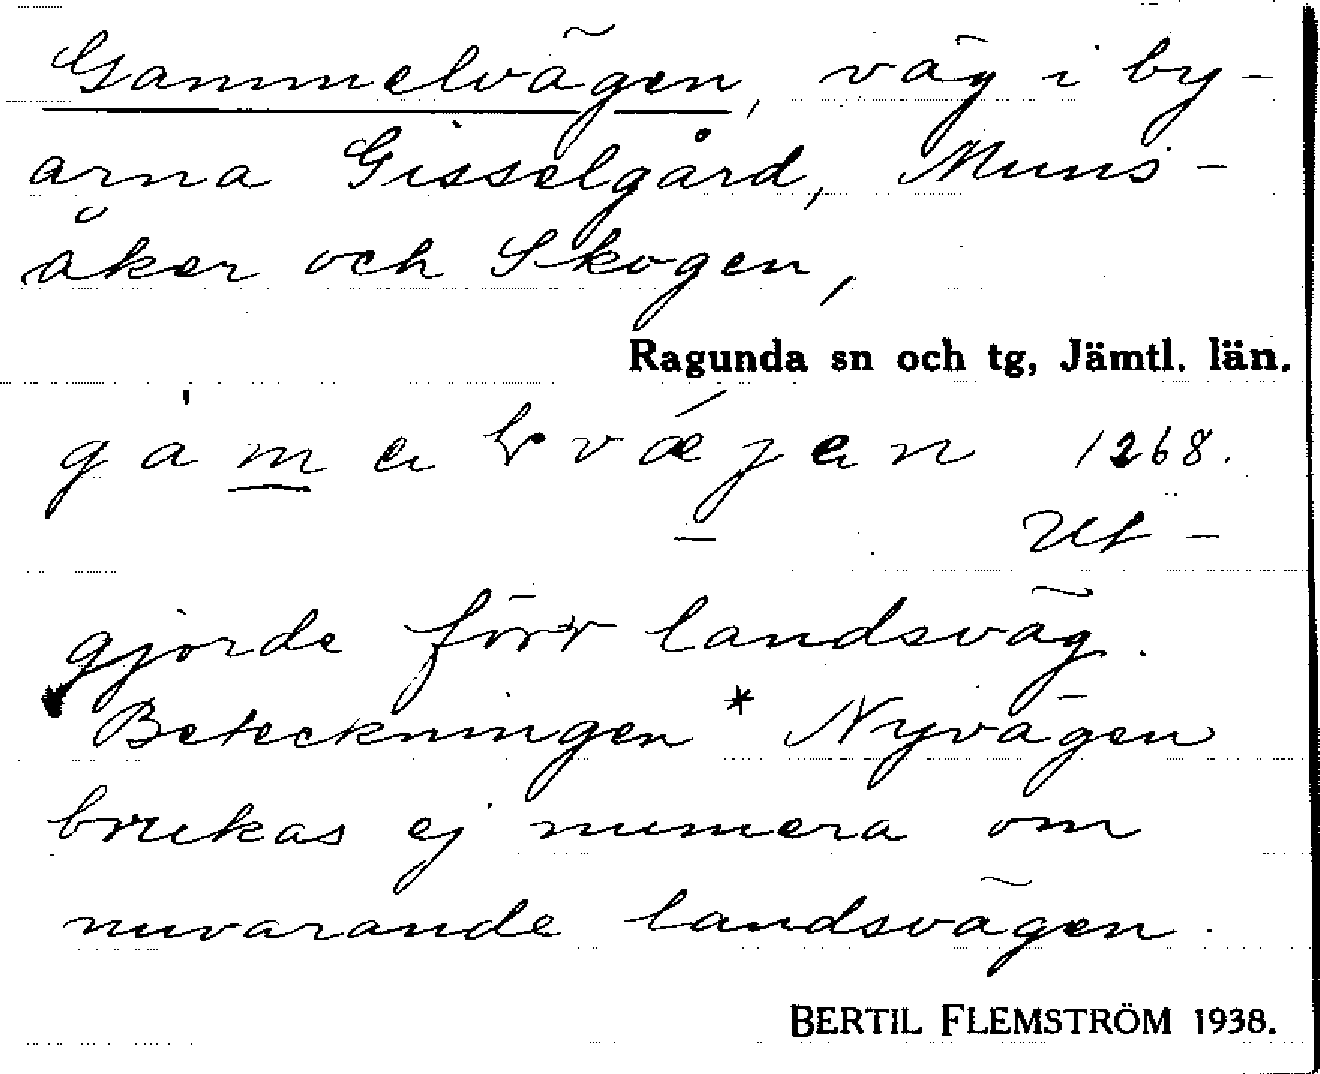 Gammelvägen, väg i by-
arna Gisselgård, Muns-
åker och Skogen,
Ragunda sn och tg, Jämtl. län.
1268.
Ut-
gjorde förr landsväg.
Beteckningen * Nyvägen
brukas ej numera om
nuvarande landsvägen.
BERTIL FLEMSTRÖM 1938.